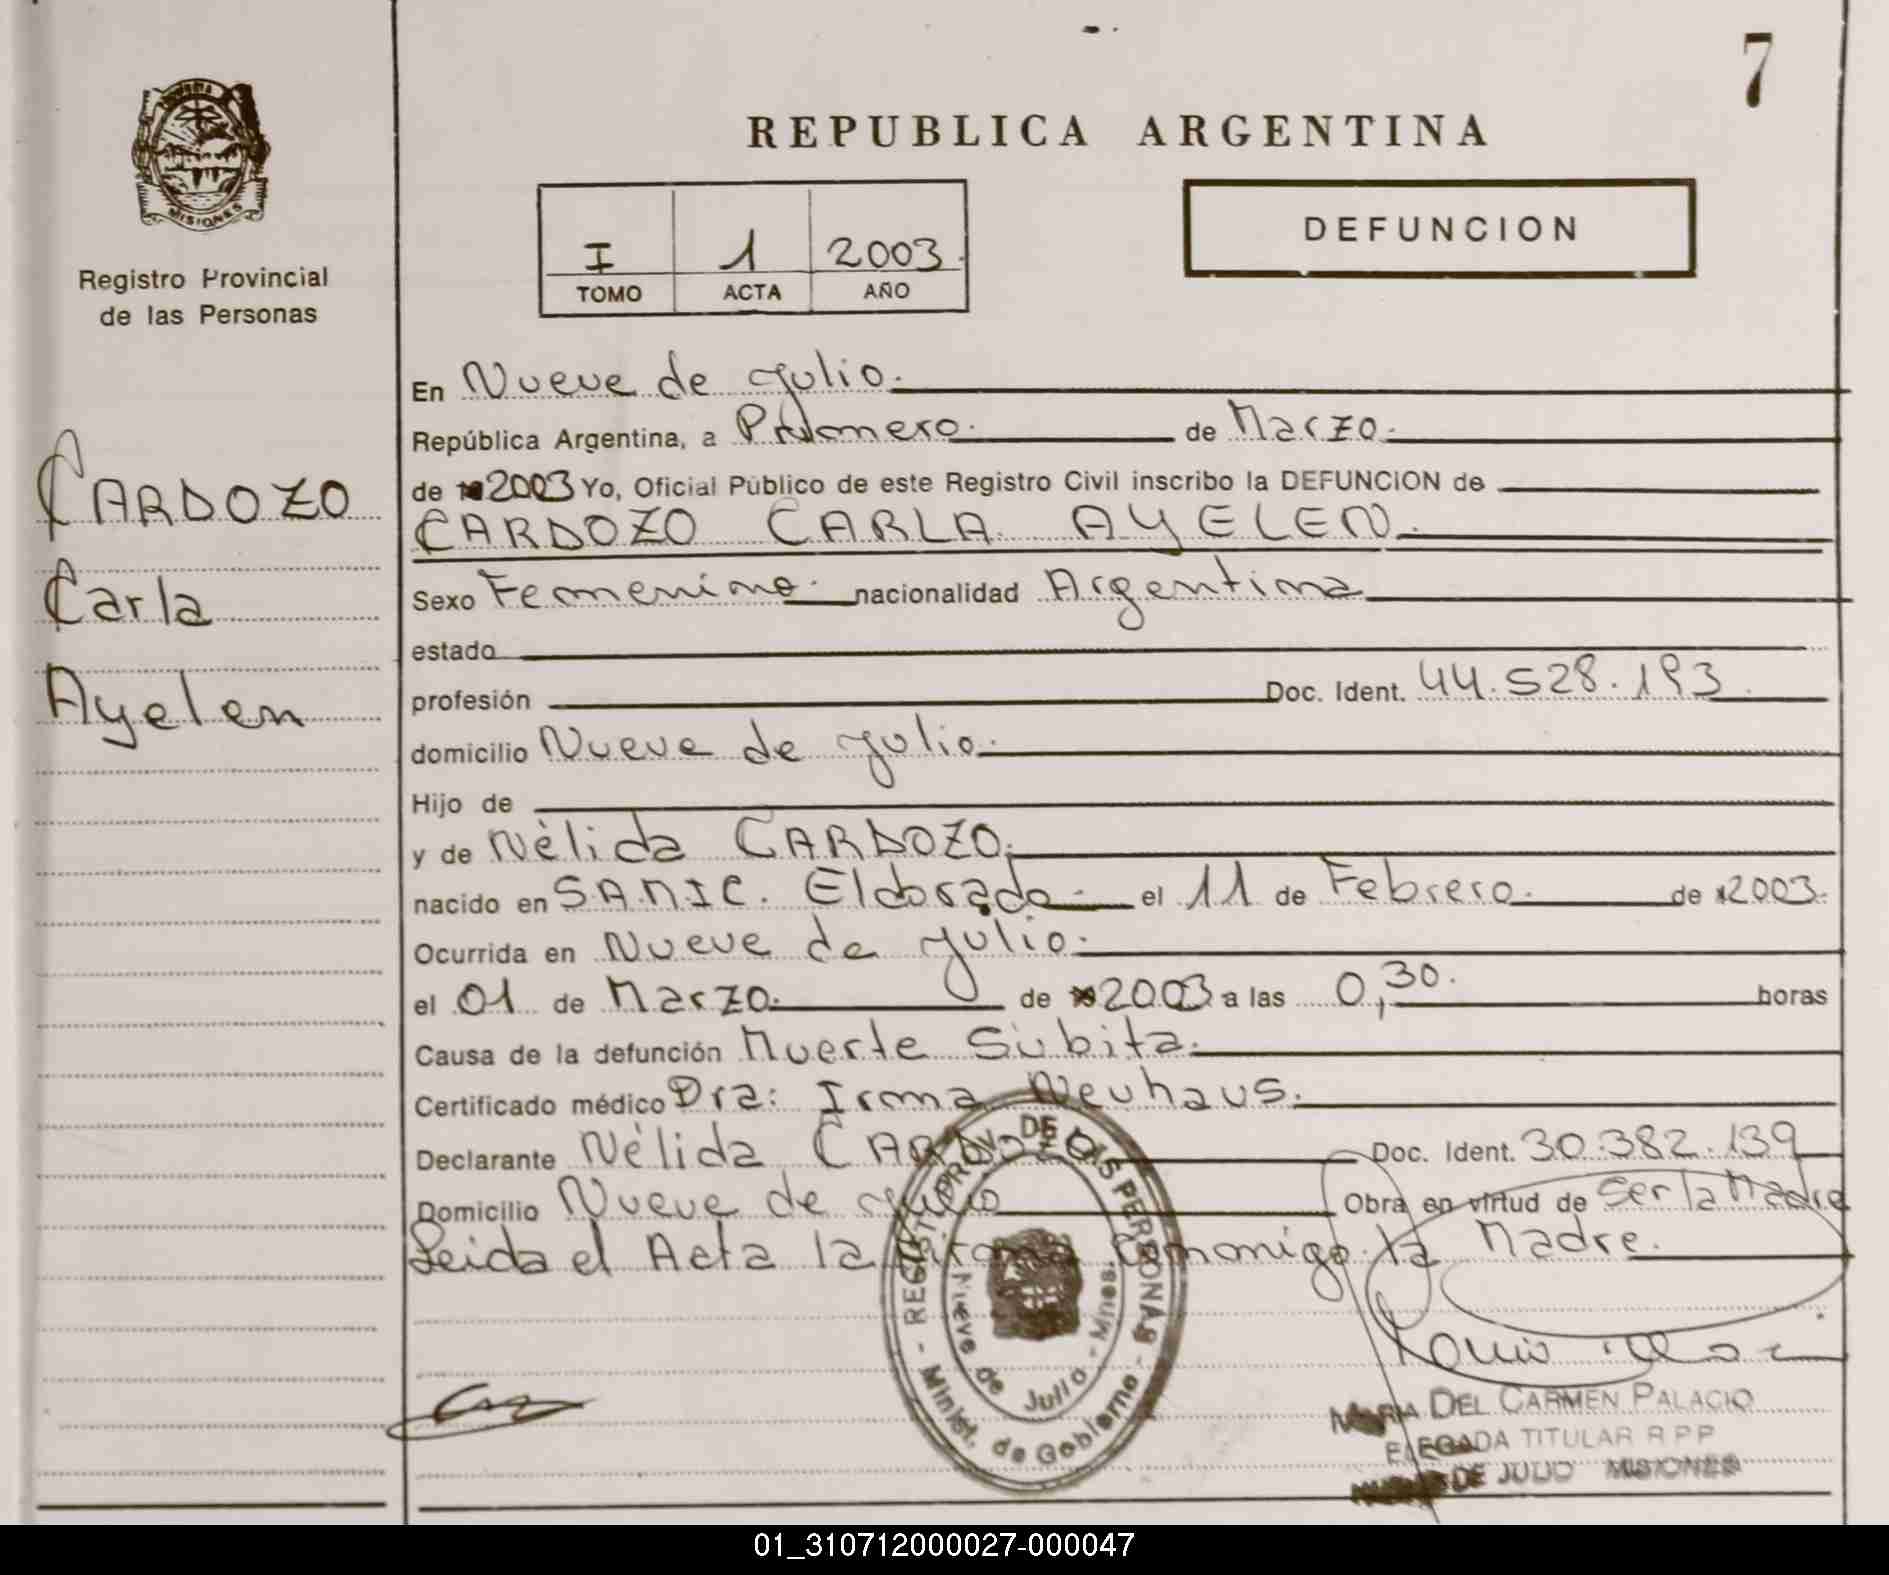 7
REPUBLICA ARGENTINA
MISIONES
Registro Provincial
de las Personas
I 1 2003
TOMO ACTA AÑO
DEFUNCION
CARDOZO
Carla
Ayelen
En Nueve de Julio.
República Argentina, a Primero. de Marzo.
de 2003 Yo, Oficial Público de este Registro Civil inscribo la DEFUNCION de
CARDOZO CARLA AYELEN.
Sexo Femenino. nacionalidad Argentina
estado
profesión Doc. Ident. 44.528.193
domicilio Nueve de Julio.
Hijo de
y de Nélida CARDOZO.
nacido en SAMIC. Eldorado. el 11 de Febrero. de 2003.
Ocurrida en Nueve de Julio.
el 01 de Marzo. de 2003 a las 0,30. horas
Causa de la defunción Muerte Súbita.
Certificado médico Dra: Irma Neuhaus.
Declarante Nélida CARDOZO Doc. Ident. 30.382.139
Domicilio Nueve de Julio Obra en virtud de Ser la Madre
Leida el Acta la Firma Conmigo la Madre.
REGIST. PROV. DE LAS PERSONAS
Nueve de Julio - Mnes.
- Minist. de Gobierno -
MARIA DEL CARMEN PALACIO
DELEGADA TITULAR R P P
DE JULIO MISIONES
01_310712000027-000047